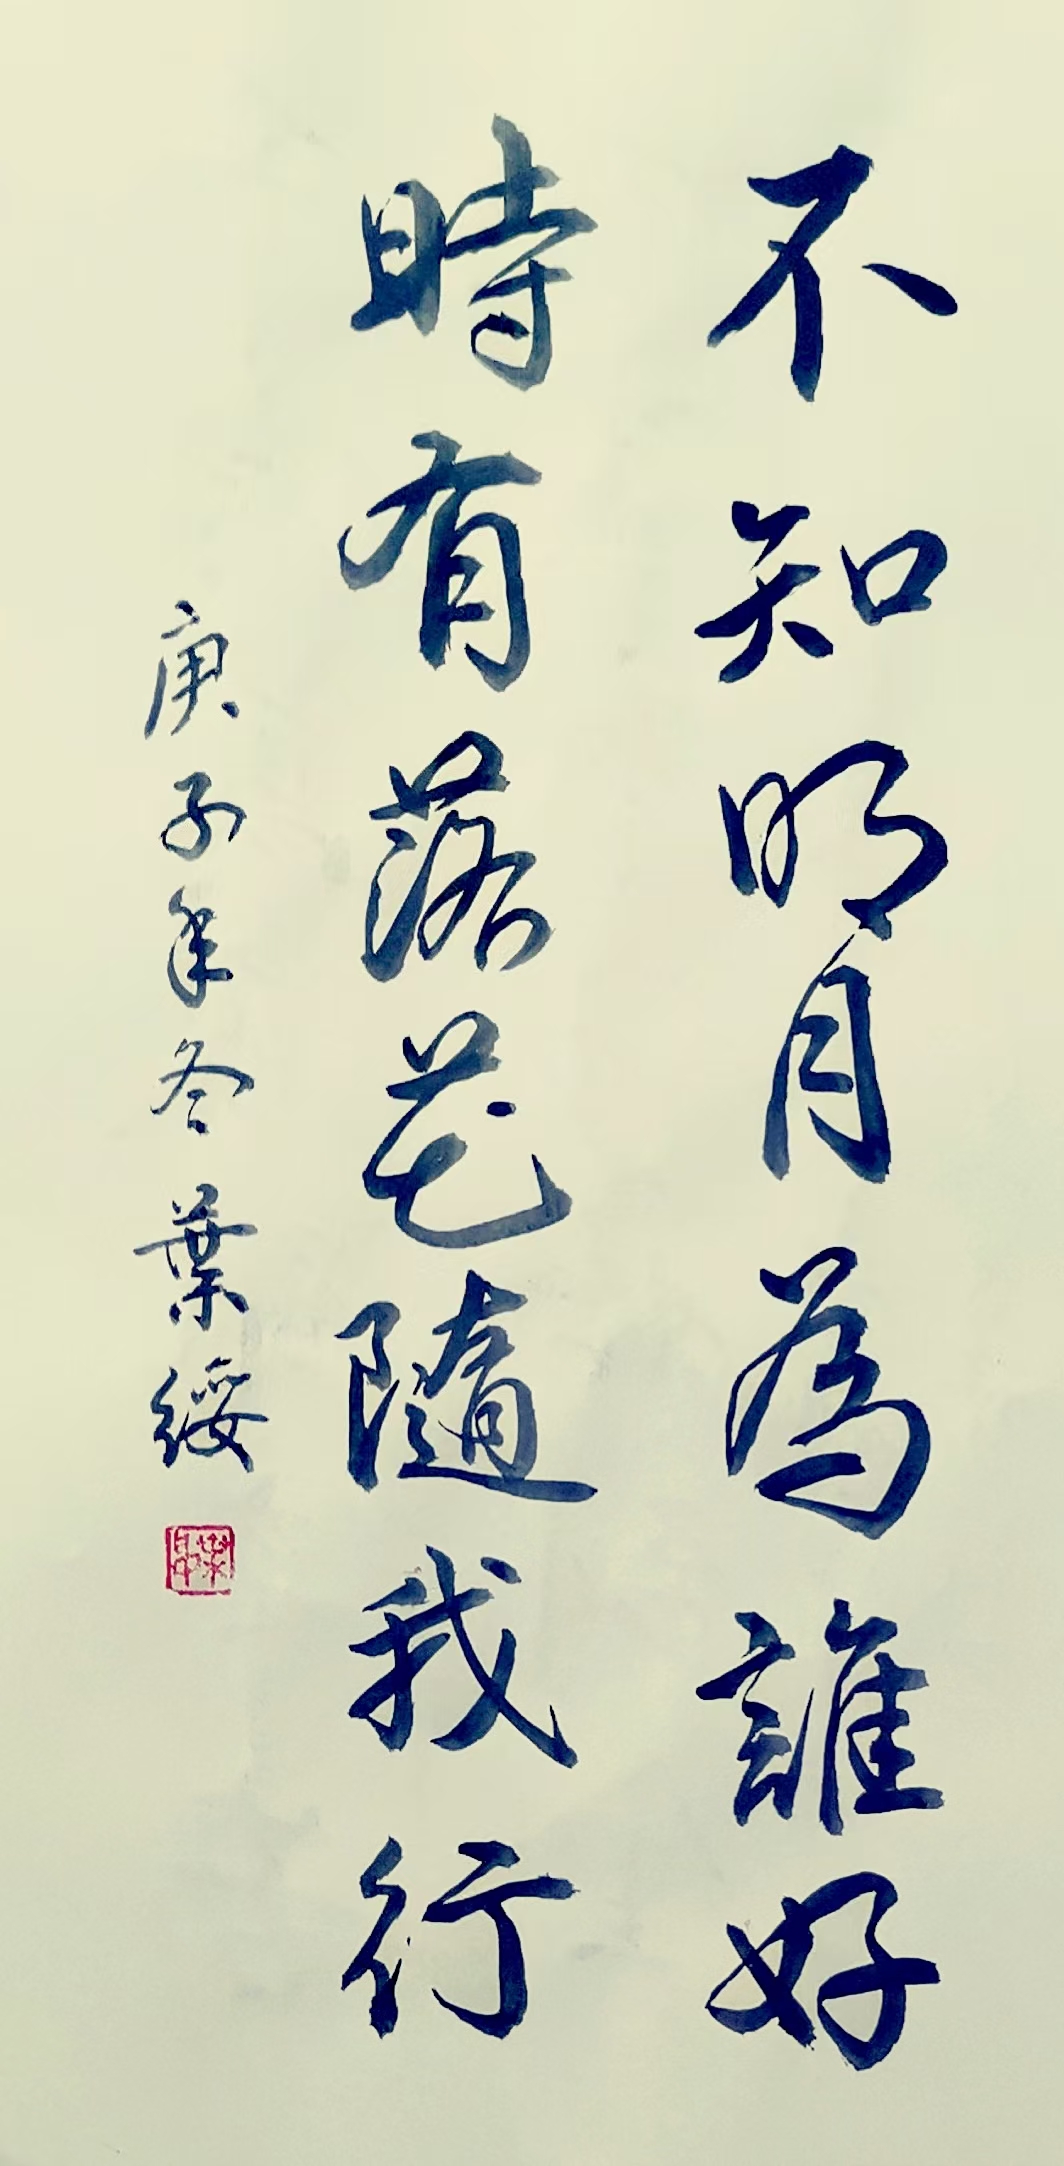 不知明月為誰好
時有落花隨我行
庚子年冬葉綏